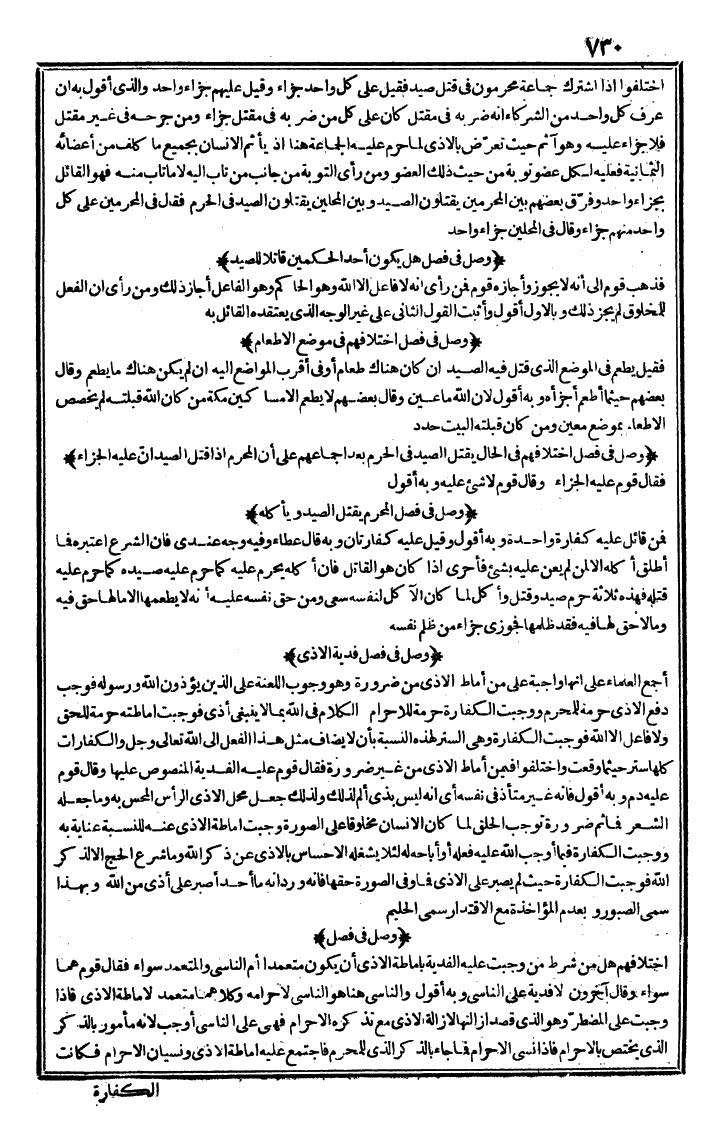 ٧٣٠
اختلفوا اذا اشترك جماعة محرمون فى قتل صيد فقيل على كل واحد جزاء وقيل عليهم جزاء واحد والذى أقول به ان
عرف كل واحد من الشركاء انه ضربه فى مقتل كان على كل من ضربه فى مقتل جزاء ومن جرحه فى غير مقتل
فلاجزاء عليه وهو آثم حيث تعرّض بالاذى لما حرم عليه الجماعة هنا اذ يأثم الانسان بجميع ما كلف من أعضائه
الثمانية فعليه لكل عضو توبة من حيث ذلك العضو ومن رأى التوبة من جانب من تاب اليه لا ماتاب منه فهو القائل
بجزاء واحد وفرّق بعضهم بين المحرمين يقتلون الصيد وبين المحلين يقتلون الصيد فى الحرم فقال فى المحرمين على كل
واحد منهم جزاء وقال فى المحلين جزاء واحد
﴿وصل فى فصل هل يكون أحد الحكمين قاتلا للصيد﴾
فذهب قوم الى أنه لا يجوز وأجازه قوم فمن رأى انه لا فاعل الا الله وهو الحاكم وهو الفاعل أجاز ذلك ومن رأى ان الفعل
للمخلوق لم يجز ذلك وبالاول أقول وأثبت القول الثانى على غير الوجه الذى يعتقده القائل به
﴿وصل فى فصل اختلافهم فى موضع الاطعام﴾
فقيل يطعم فى الموضع الذى قتل فيه الصيد ان كان هناك طعام أو فى أقرب المواضع اليه ان لم يكن هناك مايطعم وقال
بعضهم حيثما أطعم أجزأه وبه أقول لان الله ماعين وقال بعضهم لا يطعم الامساكين مكة من كان الله قبلته لم يخصص
الاطعام بموضع معين ومن كان قبلته البيت حدد
﴿وصل فى فصل اختلافهم فى الحال يقتل الصيد فى الحرم بعد اجماعهم على أن المحرم اذا قتل الصيد انّ عليه الجزاء﴾
فقال قوم عليه الجزاء وقال قوم لاشئ عليه وبه أقول
﴿وصل فى فصل المحرم يقتل الصيد ويأكله﴾
فمن قائل عليه كفارة واحدة وبه أقول وقيل عليه كفارتان وبه قال عطاء وفيه وجه عندى فان الشرع اعتبره فما
أطلق أكله الالمن لم يعن عليه بشئ فأحرى اذا كان هو القاتل فان أكله يحرم عليه كما حرم عليه صيده كما حرم عليه
قتله فهذه ثلاثة حرم صيد وقتل وأكل لما كان الآكل لنفسه سعى ومن حق نفسه عليه أنه لا يطعمها الامالها حق فيه
ومالا حق لها فيه فقد ظلمها فجوزى جزاء من ظلم نفسه
﴿وصل فى فصل فدية الاذى﴾
أجمع العلماء على انها واجبة على من أماط الاذى من ضرورة وهو وجوب اللعنة على الذين يؤذون الله ورسوله فوجب
دفع الاذى حرمة للمحرم ووجبت الكفارة حرمة للاحرام الكلام فى الله بما لا ينبغى أذى فوجبت اماطته حرمة للحق
ولا فاعل الا الله فوجبت الكفارة وهى الستر لهذه النسبة بأن لا يضاف مثل هذا الفعل الى الله تعالى وجل والكفارات
كلها ستر حيثما وقعت واختلفوا فيمن أماط الاذى من غير ضرورة فقال قوم عليه الفدية المنصوص عليها وقال قوم
عليه دم وبه أقول فانه غير متأذ فى نفسه أى انه ليس بذى ألم لذلك ولذلك جعل محل الاذى الرأس المحس به وماجعله
الشعر فماثم ضرورة توجب الحلق لما كان الانسان مخلوقا على الصورة وجبت اماطة الاذى عنه للنسبة عناية به
ووجبت الكفارة فيما أوجب الله عليه فعله أو أباحه له لئلا يشغله الاحساس بالاذى عن ذكر الله وما شرع الحج الالذكر
الله فوجبت الكفارة حيث لم يصبر على الاذى فما وفى الصورة حقها فانه ورد انه ما أحد أصبر على أذى من الله وبهذا
سمى الصبور وبعدم المؤاخذة مع الاقتدار سمى الحليم
﴿وصل فى فصل﴾
اختلافهم هل من شرط من وجبت عليه الفدية باماطة الاذى أن يكون متعمدا أم الناسى والمتعمد سواء فقال قوم هما
سواء وقال آخرون لافدية على الناسى وبه أقول والناسى هنا هو الناسى لاحرامه وكلاهما متعمد لاماطة الاذى فاذا
وجبت على المضطرّ وهو الذى قصد ازالتها لازالة الاذى مع تذكره الاحرام فهى على الناسى أوجب لانه مأمور بالذكر
الذى يختص بالاحرام فاذا نسى الاحرام فماجاء بالذكر الذى للمحرم فاجتمع عليه اماطة الاذى ونسيان الاحرام فكانت
الكفارة